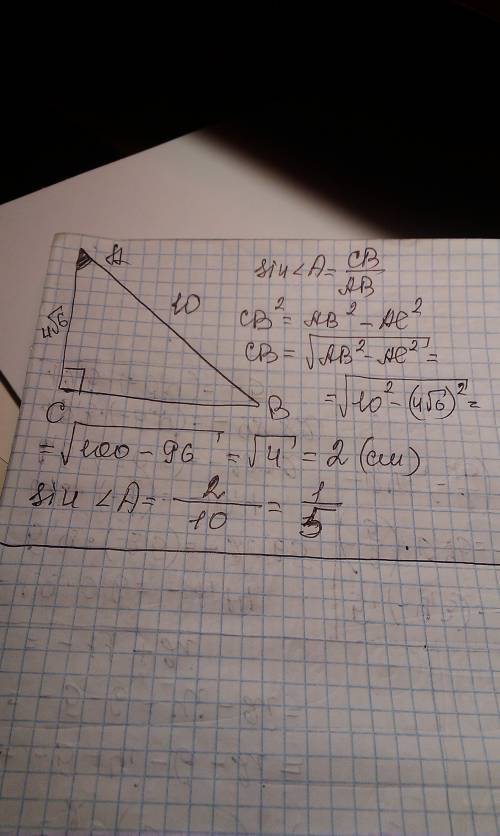 A
4√6
10
C
B
sin∠A = CB/AB
CB² = AB² − AC²
CB = √(AB² − AC²) =
= √(10² − (4√6)²) =
= √(100 − 96) = √4 = 2 (см)
sin ∠A = 2/10 = 1/5